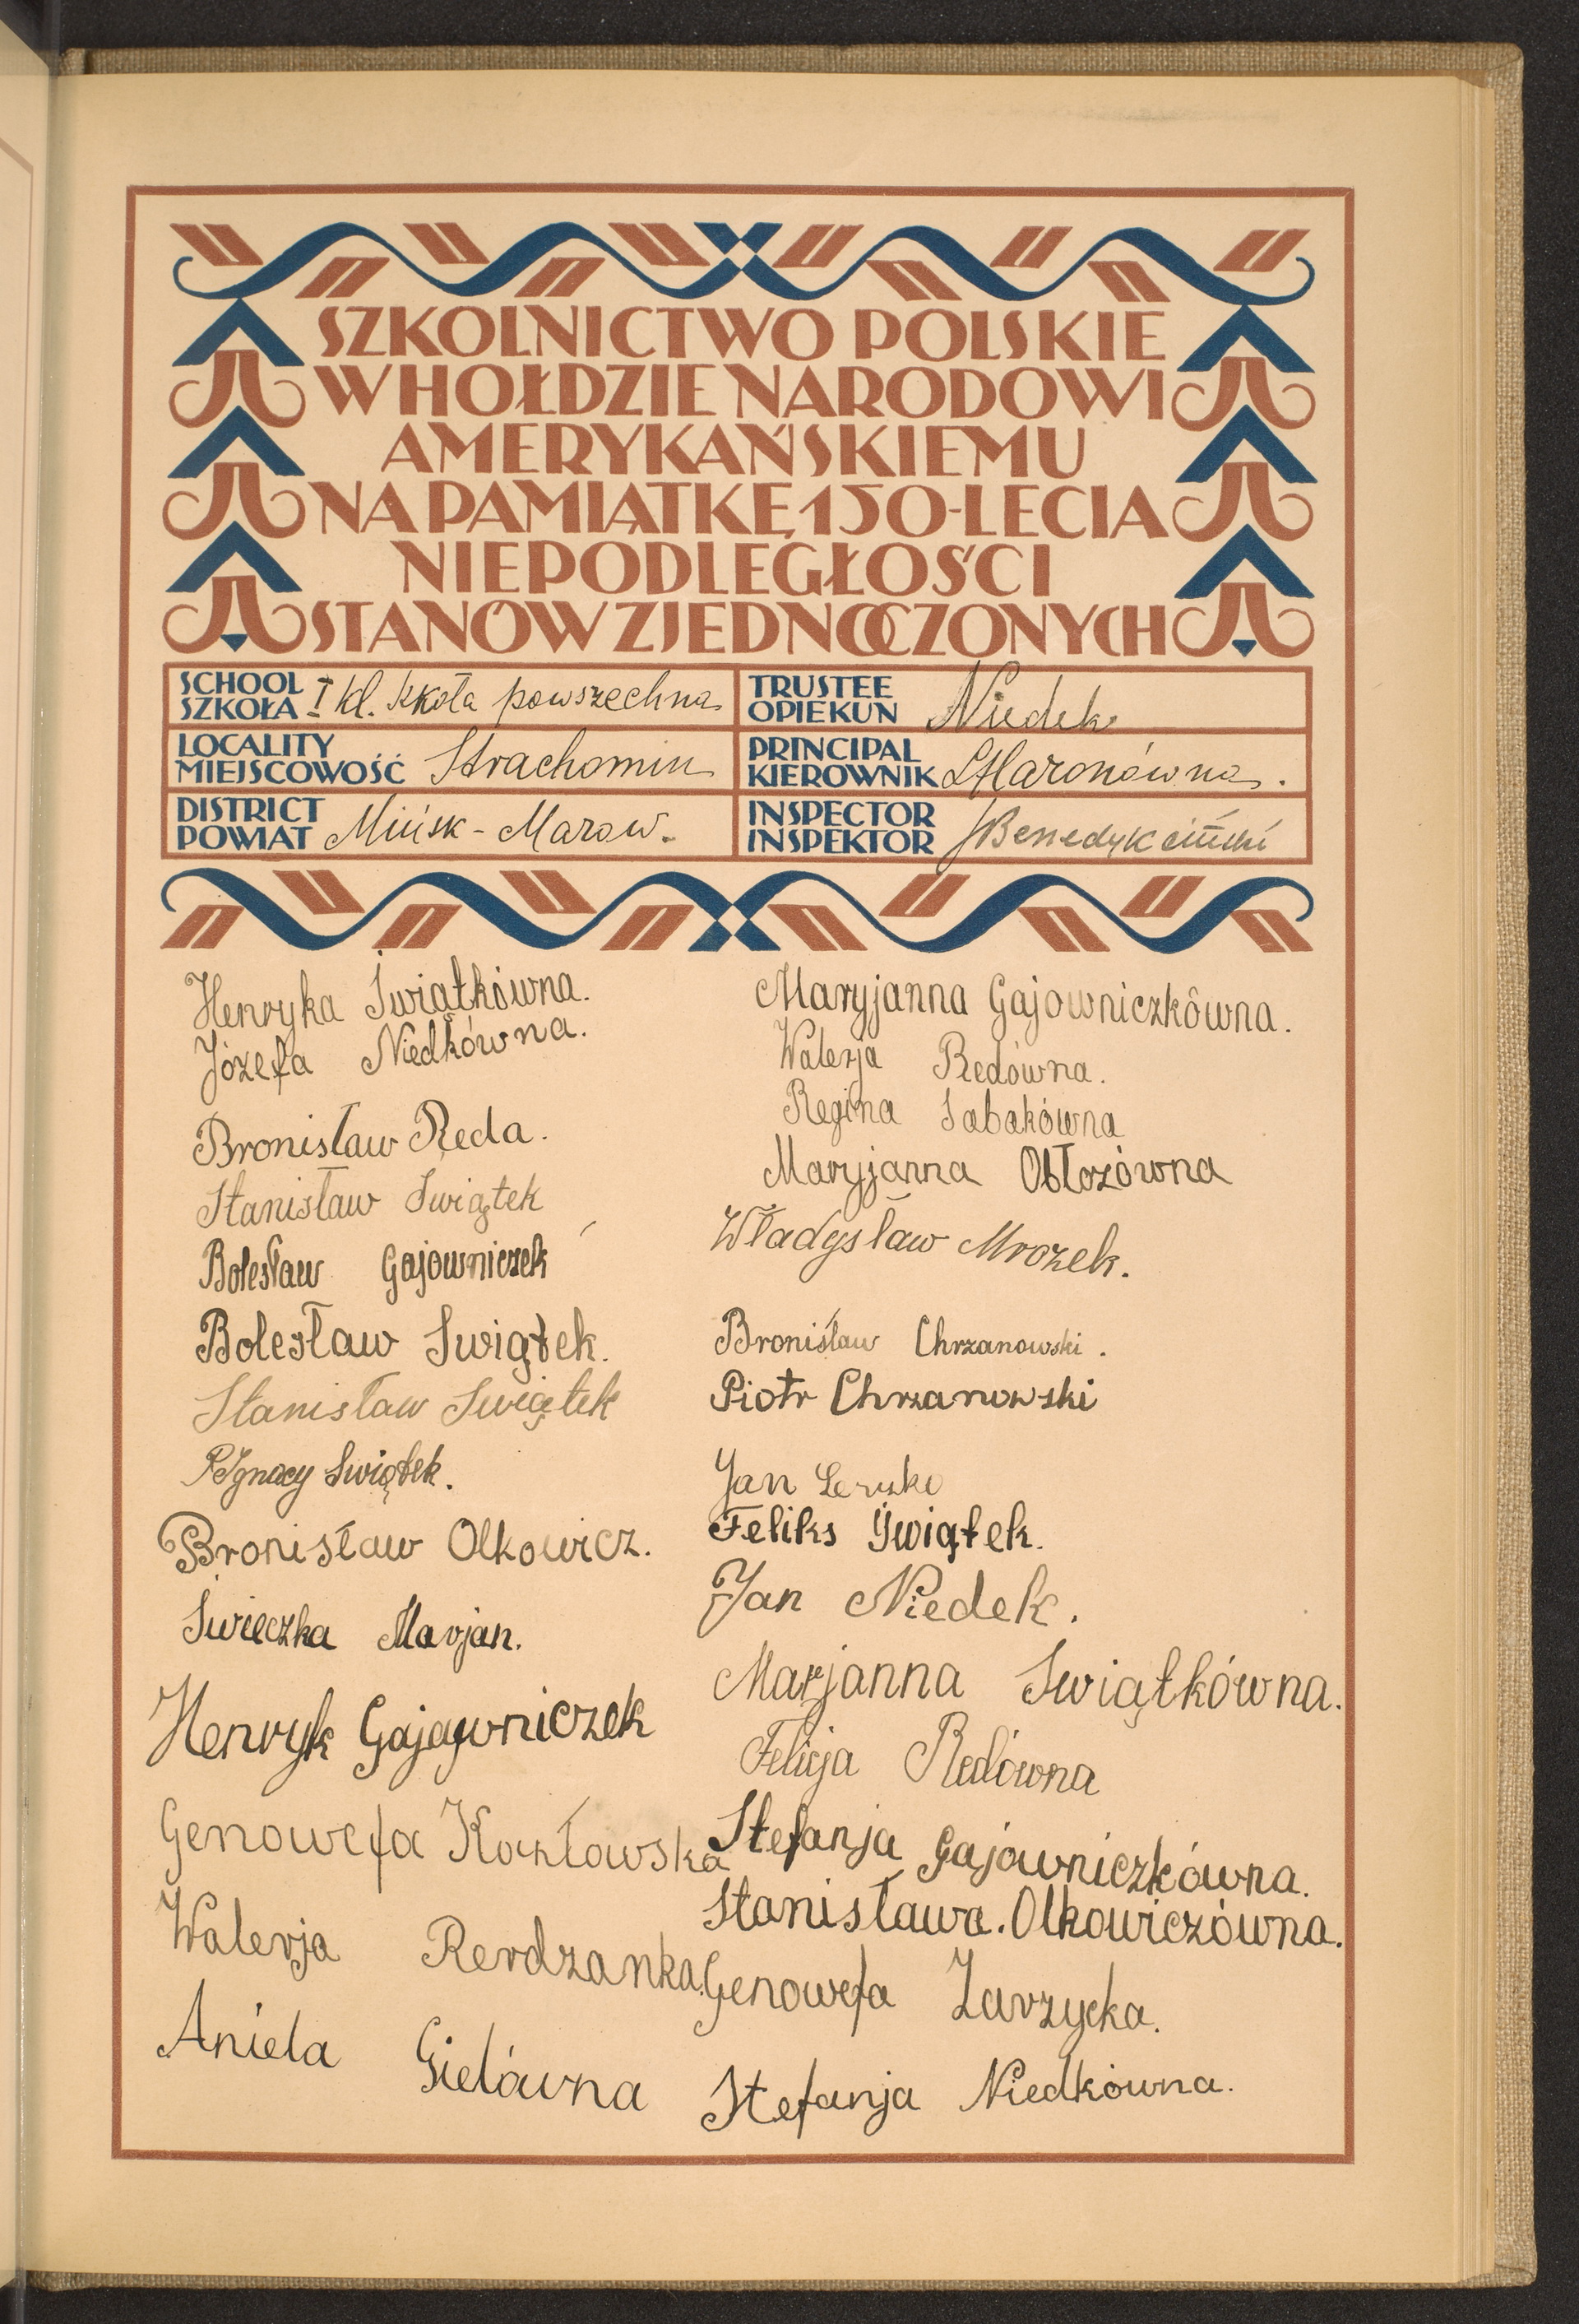 SZKOLNICTWO POLSKIE
W HOŁDZIE NARODOWI
AMERYKAŃSKIEMU
NA PAMIĄTKĘ 150-LECIA
NIEPODLEGŁOŚCI
STANÓW ZJEDNOCZONYCH
SCHOOL
SZKOŁA I kl. szkoła powszechna
LOCALITY
MIEJSCOWOŚĆ Strachomin
DISTRICT
POWIAT Mińsk-Mazow.
TRUSTEE
OPIEKUN Niedek
PRINCIPAL
KIEROWNIK
INSPECTOR
INSPEKTOR
Henryka Świątkówna.
Józefa Niedkówna.
Bronisław Ręda.
Stanisław Swiątek
Bolesław Gajowniczek
Bolesław Swiątek.
Stanisław Swiątek
Ignacy Swiątek.
Bronisław Olkowicz.
Świeczka Marjan.
Henryk Gajowniczek
Genowefa Kozłowska
Walerja Rerdzanka.
Aniela Gielówna
Maryjanna Gajowniczkówna.
Walerja Redówna.
Regina Sabakówna
Maryjanna Obłozówna
Władysław Mrozek.
Bronisław Chrzanowski.
Piotr Chrzanowski
Jan
Feliks Świątek.
Jan Niedek.
Marjanna Swiątkówna.
Felicja Redówna
Stefanja Gajowniczkówna.
Stanisława. Olkowiczówna.
Genowefa Zawrzycka.
Stefanja Niedkówna.